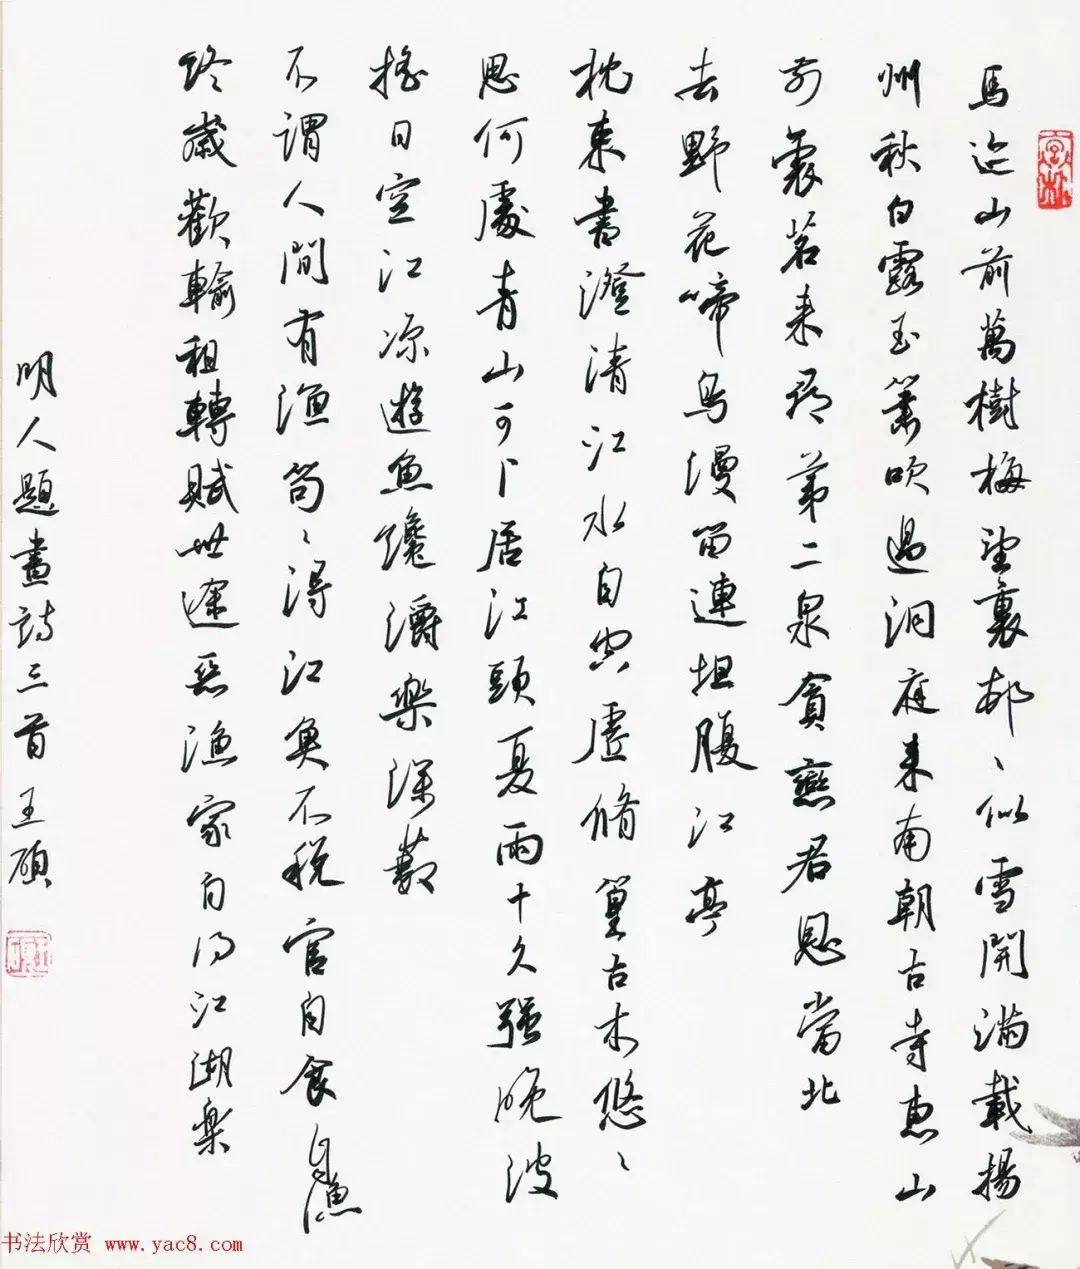 馬迹山前萬樹梅望裏邨〻似雪開滿載揚
州秋白露玉簫吹過洞庭来南朝古寺惠山
前裹茗来尋第二泉貪戀君恩當北
去野花啼鳥漫留連坦腹江亭
枕束書澄清江水自空虚脩篁古木悠〻
思何處青山可卜居江頭夏雨十久强晚波
摇日空江凉遊魚樂深藪
不謂人間有漁笱〻得江魚不税官自食自漁
终歲歡輸租轉賦世途惡漁家自得江湖樂
明人題畫詩三首王碩
书法欣赏 www.yac8.com